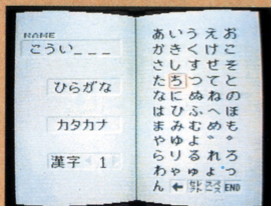 NAME
こうい＿＿＿
ひらがな
カタカナ
漢字 1
あいうえお
かきくけこ
さしすせそ
たちつてと
なにぬねの
はひふへほ
まみむめも
やゆよ゛゜
らりるれろ
わゃゅょっ
ん ← END